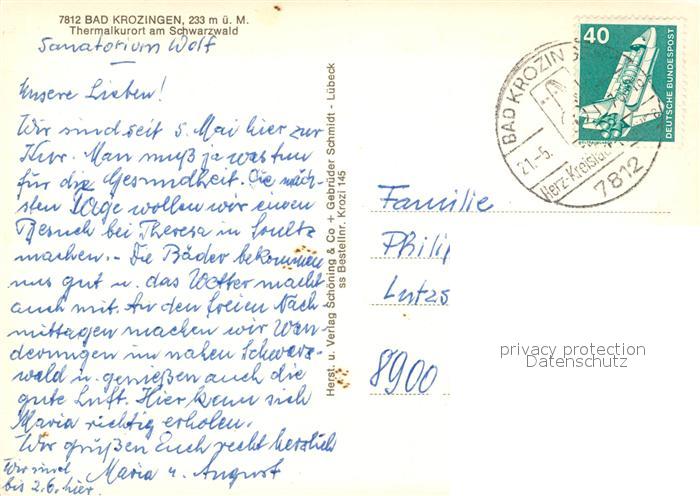 7812 BAD KROZINGEN, 233 m ü. M.
Thermalkurort am Schwarzwald
Sanatorium Wolf
Unsere Lieben!
Wir sind seit 5. Mai hier zur
Kur. Man muß ja was tun
für die Gesundheit. Die näch-
sten Tage wollen wir einen
Besuch bei Theresa in Soultz
machen. - Die Bäder bekommen
uns gut u. das Wetter macht
auch mit. An den freien Nach-
mittagen machen wir Wan-
derungen im nahen Schwarz-
wald u. genießen auch die
gute Luft. Hier kann sich
Maria richtig erholen.
Wir grüßen Euch recht herzlich
Maria u. August
Wir sind
bis 2.6. hier.
Herst. u. Verlag Schöning & Co + Gebrüder Schmidt - Lübeck
ss Bestellnr. Krozi 145
40
DEUTSCHE BUNDESPOST
BAD KROZIN
21.-5.
Herz-Kreislauf
7812
Familie
Phili
Lutzs
8900
privacy protection
Datenschutz